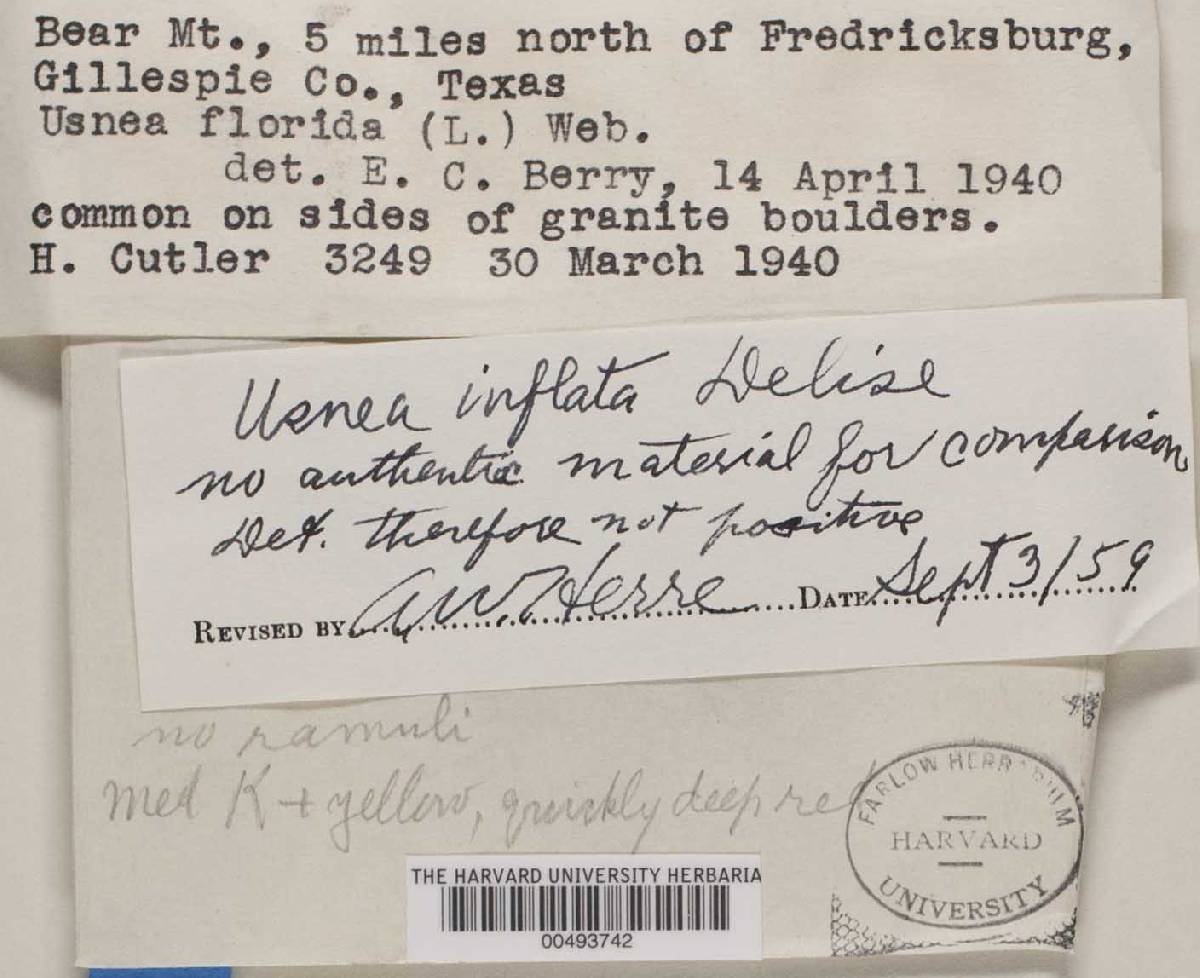 Bear Mt., 5 miles north of Fredricksburg,
Gillespie Co., Texas
Usnea florida (L.) Web.
det. E. C. Berry, 14 April 1940
common on sides of granite boulders.
H. Cutler 3249 30 March 1940
Usnea inflata Delise
no authentic material for comparison
Det. therefore not positive
REVISED BY A.W. Herre DATE Sept 3/59
no ramuli
med K + yellow, quickly deep red
FARLOW HERBARIUM
HARVARD
UNIVERSITY
THE HARVARD UNIVERSITY HERBARIA
00493742